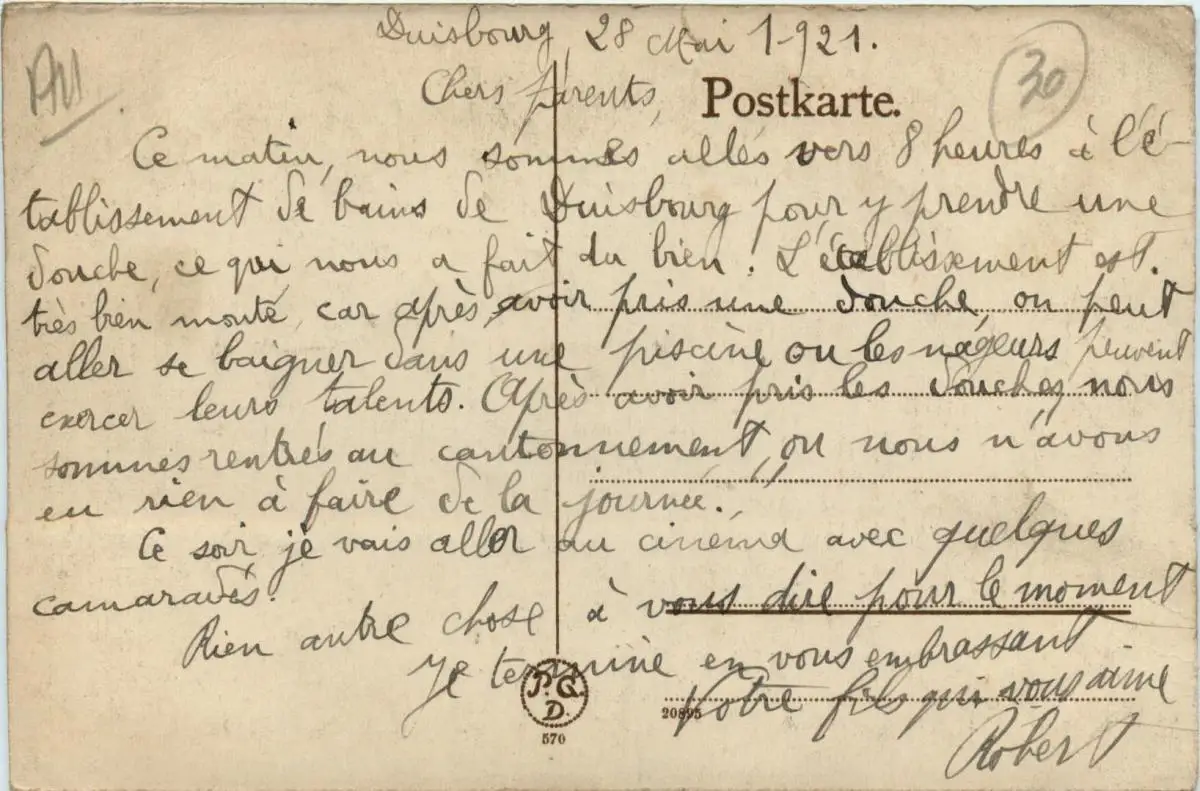 Duisbourg, 28 Mai 1921.
Chers parents,
Postkarte.
30
Ce matin, nous sommes allés vers 8 heures à l'é-
tablissement de bains de Duisbourg pour y prendre une
douche, ce qui nous a fait du bien. L'établissement est
très bien monté, car après avoir pris une douche, on peut
aller se baigner dans une piscine ou les nageurs peuvent
exercer leurs talents. Après avoir pris les douches nous
sommes rentrés au cantonnement, ou nous n'avons
eu rien à faire de la journée.
Ce soir je vais aller au cinéma avec quelques
camarades.
Rien autre chose à vous dire pour le moment
Je termine en vous embrassant
Votre fils qui vous aime
Robert
P.G.
D.
570
20895